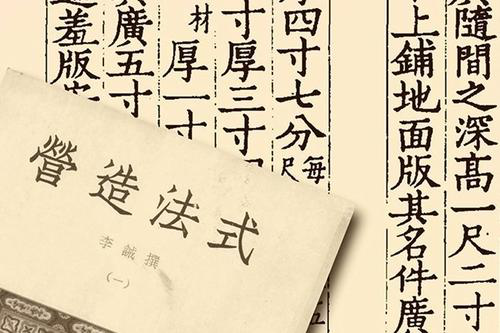 廣隨間之深高一尺二寸
上鋪地面版其名件廣
厚四寸七分每
尺
寸厚三寸
材
厚一寸
廣五寸
羞版
營造法式
李誡撰
(一)